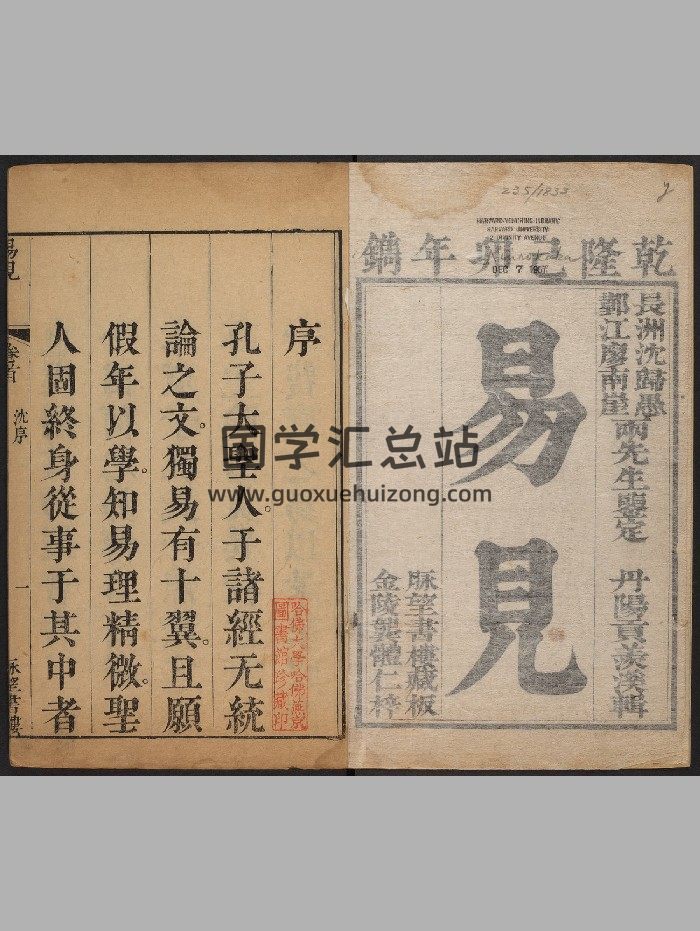 235/1833
HARVARD-YENCHING LIBRARY
HARVARD UNIVERSITY
2 DIVINITY AVENUE
DEC 7 1967
乾隆己卯年鐫
長洲沈歸愚
邗江廖南崖
兩先生鑒定
丹陽貢羨溪輯
易見
脉望書樓藏板
金陵龔體仁梓
序
孔子大聖人于諸經无統
論之文。獨易有十翼。且願
假年以學。知易理精微。聖
人固終身從事于其中者
哈佛大學哈佛燕京
圖書館珍藏印
易見
卷首
沈序
一
脉望書樓
国学汇总站
www.guoxuehuizong.com